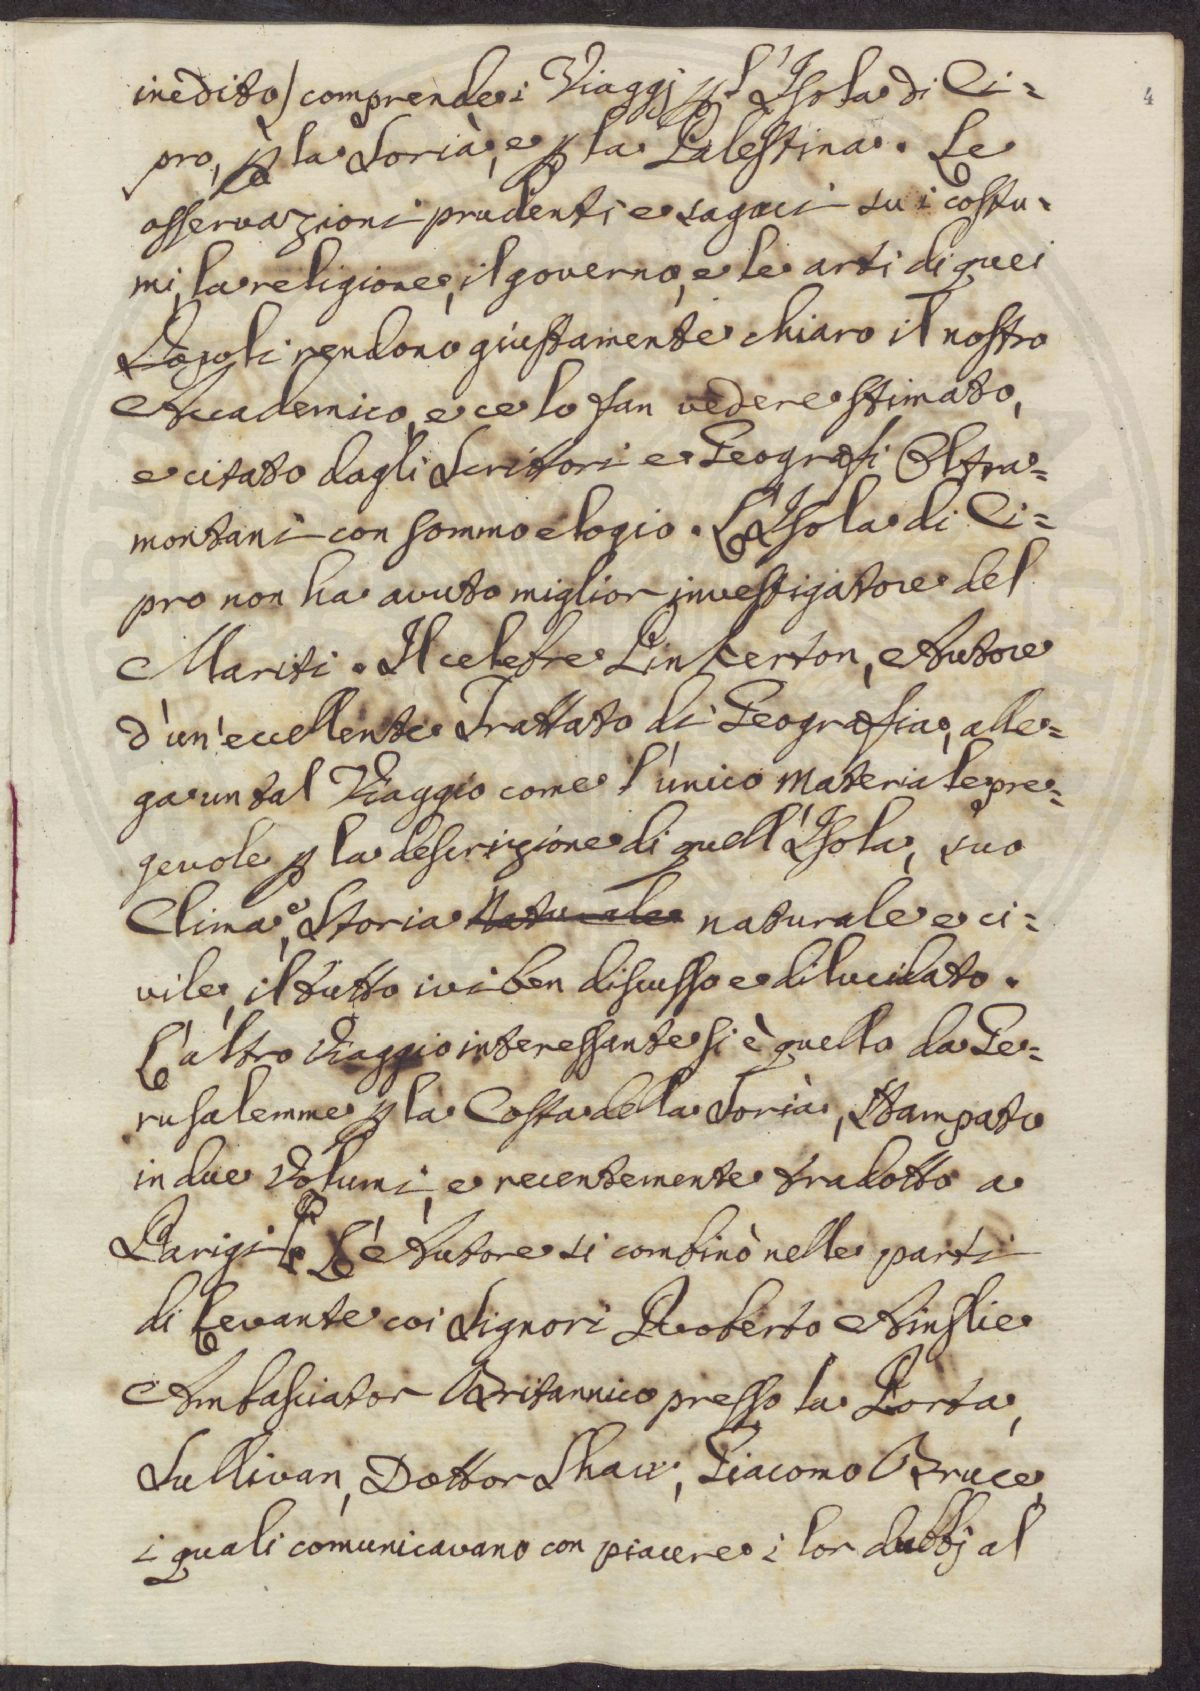 4
inedito) comprende i Viaggj p l'Isola di Ci=
pro, p la Sorìa, e p la Palestina. Le
osservazioni prudenti e sagaci su i costu=
mi, la religione, il governo, e le arti di quei
Popoli rendono giustamente chiaro il nostro
Accademico, e ce lo fan vedere stimato,
e citato dagli Scrittori e Geografi Oltra=
montani con sommo elogio. L'Isola di Ci=
pro non ha avuto miglior investigatore del
Mariti. Il celebre Pinkerton, Autore
d'un'eccellente Trattato di Geografia, alle=
ga un tal Viaggio come l'unico materiale pre=
gevole p la descrizione di quell'Isola, suo
Clima, e Storia Naturale naturale e ci=
vile, il tutto ivi ben discusso e dilucidato.
L'altro Viaggio interessante si è quello da Ge=
rusalemme p la Costa della Sorìa, stampato
in due Volumi, e recentemente tradotto a
Parigi. L'Autore si combinò nelle parti
di Levante coi Signori Roberto Ainslie
Ambasciator Britannico presso la Porta,
Sullivan, Dottor Shaw, Giacomo Bruce,
i quali comunicavano con piacere i lor dubbj al